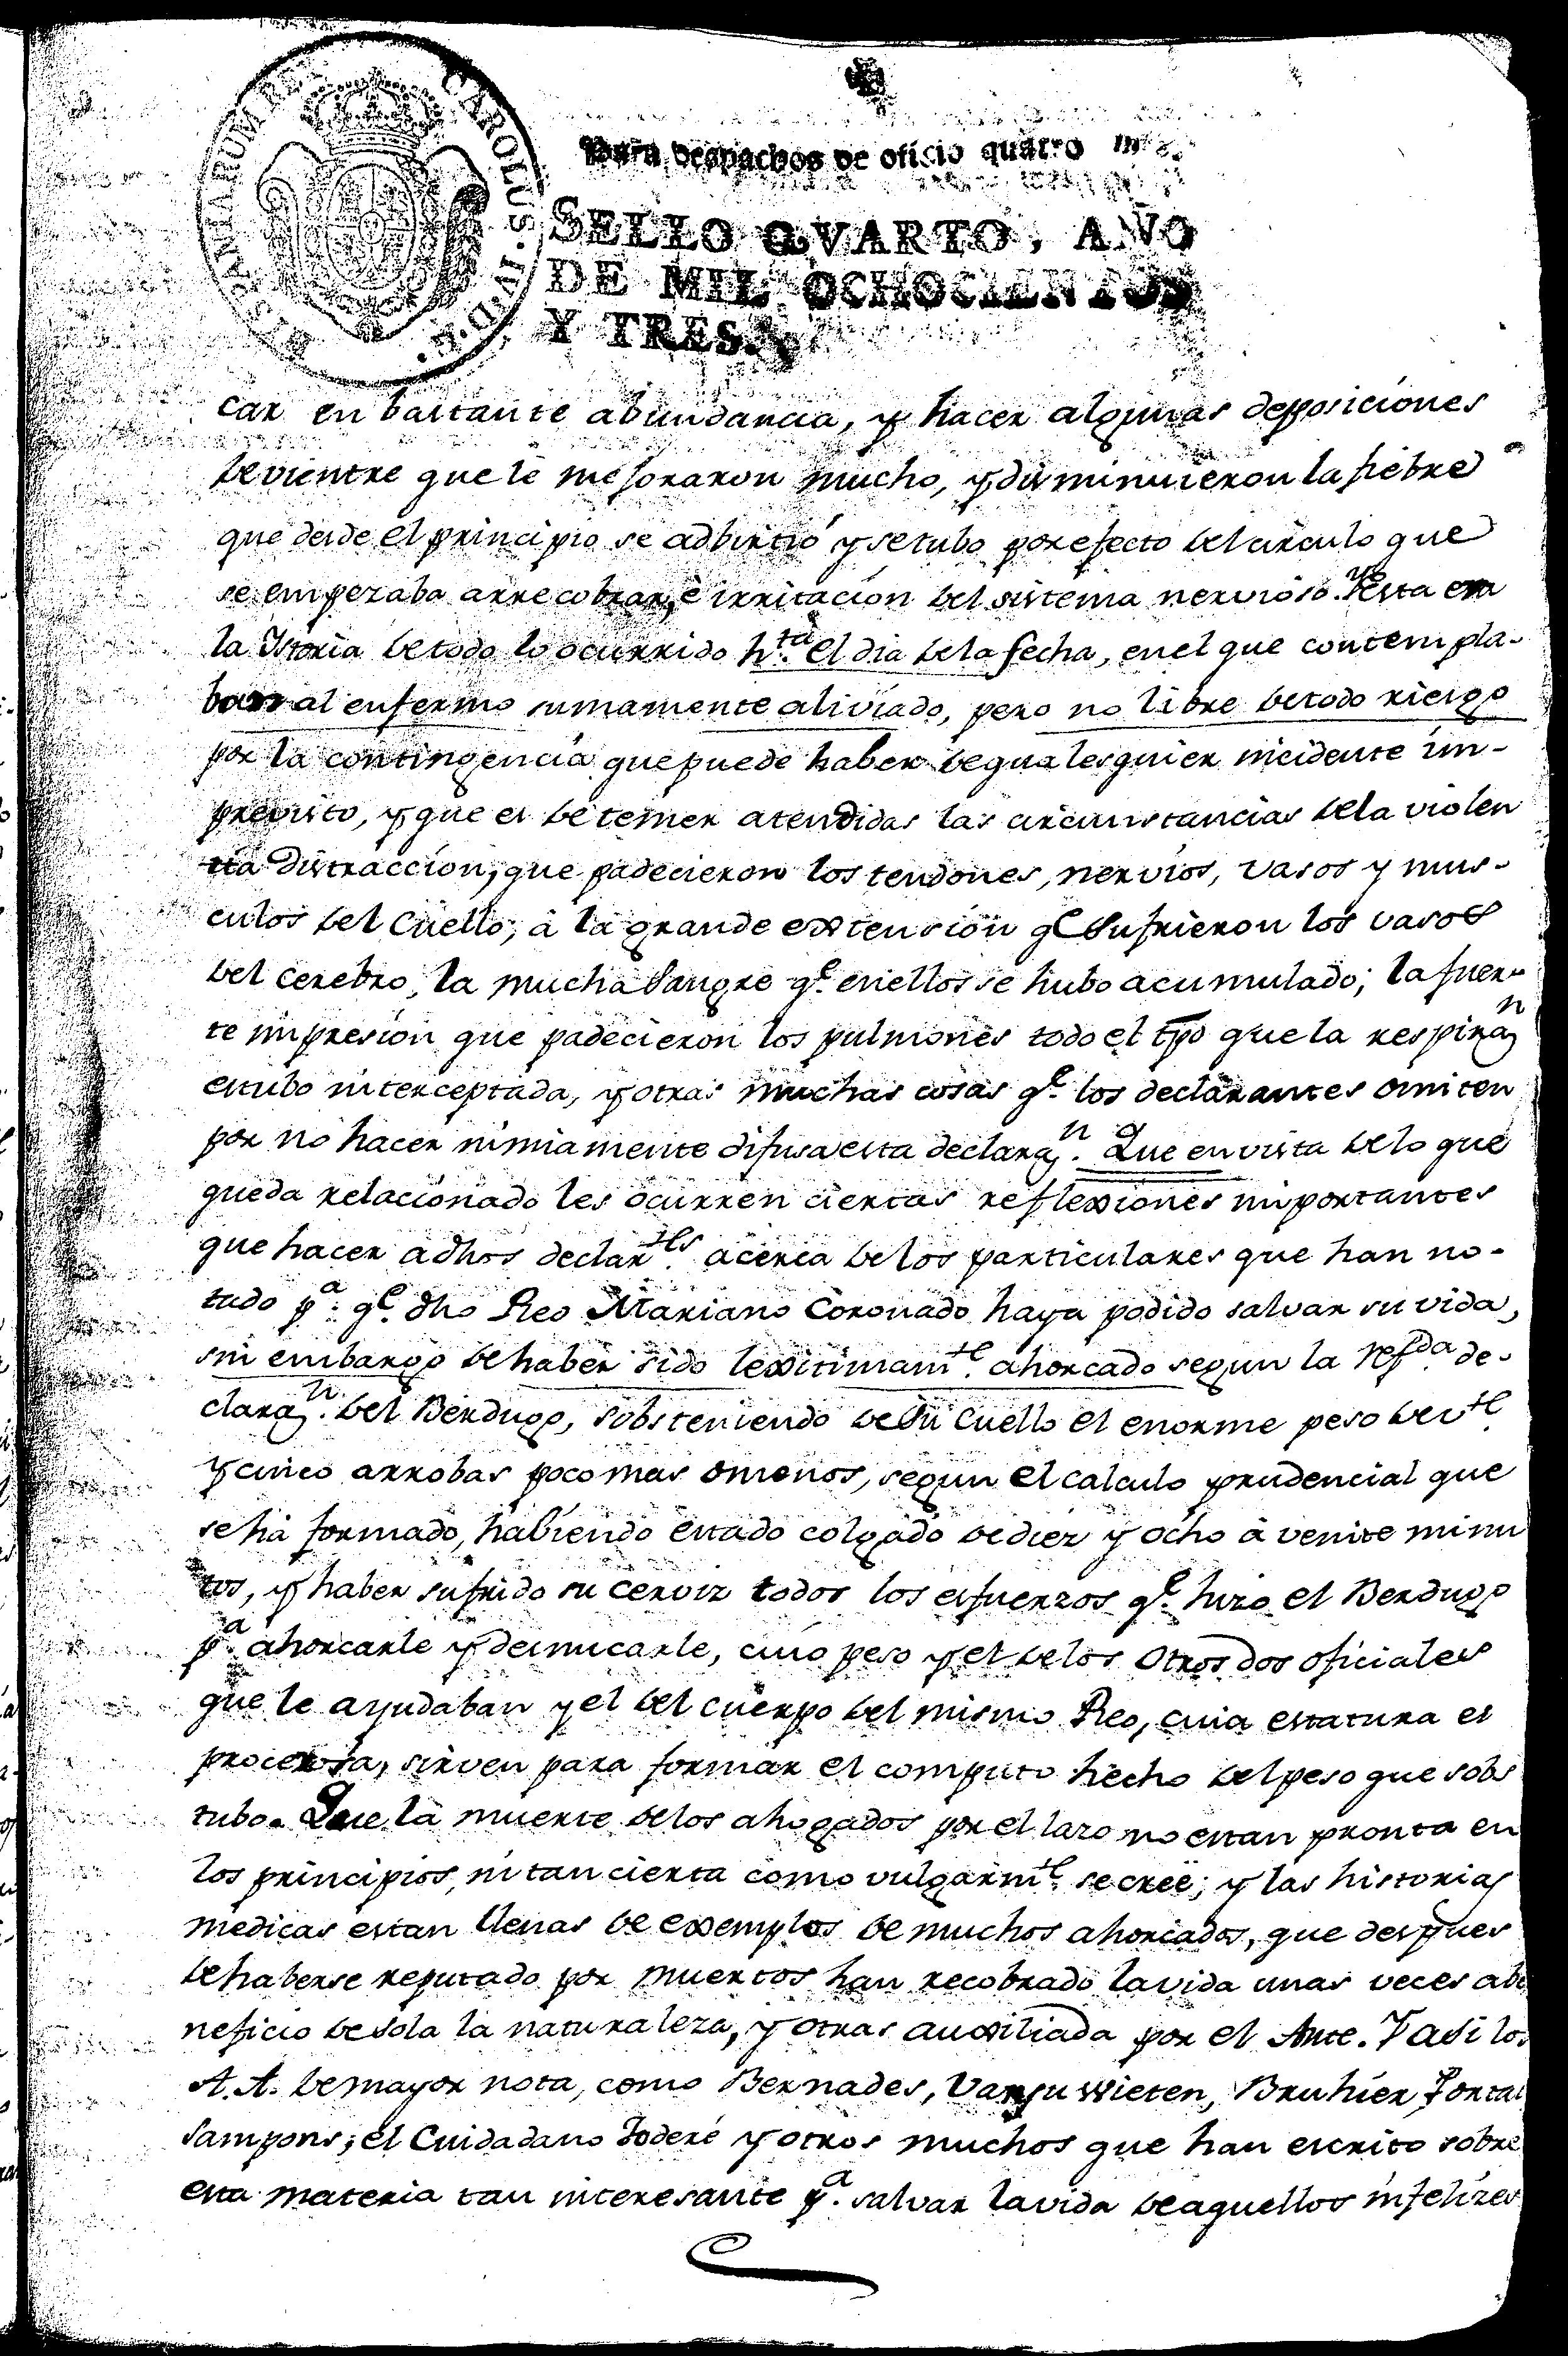 HISPANIARUM REX CAROLUS. IV. D. G.
Para despachos de oficio quatro mrs.
SELLO QVARTO, AÑO
DE MIL OCHOCIENTOS
Y TRES.
car en bastante abundancia, y hacer algunas deposiciones
de vientre que le mejoraron mucho, y disminuieron la fiebre
que desde el principio se adbirtió y se tubo por efecto del circulo que
se empezaba arrecobrar, é irritacion del sistema nervioso. Que esta era
la Istoria de todo lo ocurrido h.ta el dia de la fecha, en el que contempla-
ban al enfermo sumamente aliviado, pero no libre de todo riesgo
por la contingencia que puede haber de qualesquier incidente im-
previsto, y que es de temer atendidas las circunstancias de la violen
ta distraccion, que padecieron los tendones, nervios, vasos y mus-
culos del cuello; á la grande extension q.e sufrieron los vasos
del cerebro, la mucha sangre q.e en ellos se hubo acumulado; la fuer-
te impresion que padecieron los pulmones todo el tpo que la respiraz.n
estubo interceptada, y otras muchas cosas q.e los declarantes omiten
por no hacer nimiamente difusa esta declaraz.n. Que en vista de lo que
queda relacionado les ocurren ciertas reflexiones importantes
que hacer adhos declar.tes acerca de los particulares que han no-
tado p.a q.e dho Reo Mariano Coronado haya podido salvar su vida,
sin embargo de haber sido lexitimam.te ahorcado segun la ref.da de-
claraz.n del Berdugo, sobsteniendo de su cuello el enorme peso de v.te
y cinco arrobas poco mas omenos, segun el calculo prudencial que
se há formado, habiendo estado colgado de diez y ocho á veinte minu
tos, y haber sufrido su cerviz todos los esfuerzos q.e hizo el Berdugo
p.a ahorcarle y desnucarle, cuio peso y el de los otros dos oficiales
que le ayudaban y el del cuerpo del mismo Reo, cuia estatura es
procerosa, sirven para formar el computo hecho del peso que sobs
tubo. Que la muerte de los ahogados por el lazo no es tan pronta en
los principios, ni tan cierta como vulgarm.te se creé; y las historias
medicas estan llenas de exemplos de muchos ahorcados, que despues
de haberse reputado por muertos han recobrado la vida unas veces abe
neficio de sola la naturaleza, y otras auxiliada por el Arte. Y asi los
A.A. de mayor nota, como Bernades, Vansuwieten, Bruhier, Portal
Sampons; el Cuidadano Foderé y otros muchos que han escrito sobre
esta materia tan interesante p.a salvar la vida de aquellos infelizes